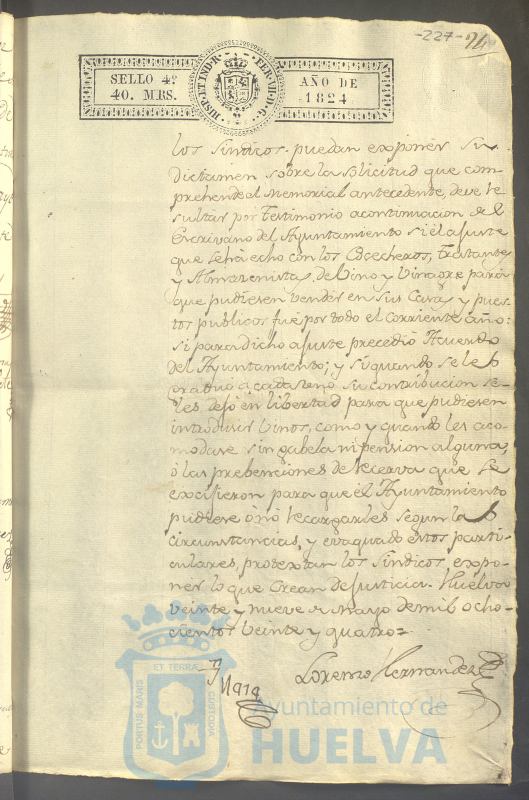 -227- 24
SELLO 4º
40. MRS.
HISP. ET IND. R. FER. VII. D. G.
AÑO DE
1824
los Sindicos puedan exponer su
dictamen sobre la solicitud que com
prehende el Memorial antecedente, deve re
sultar por Testimonio acontinuacion del
Escrivano del Ayuntamiento si el ajuste
que se há echo con los Cocecheros, Tratantes
y Almazenistas, de Vino y Vinagre para
que pudiesen vender en sus Casas y pues
tos publicos fue por todo el corriente año:
si para dicho ajuste precedió Acuerdo
del Ayuntamiento; y si quando se les
graduó á cada uno su contribucion se
les dejó en libertad para que pudiesen
introducir Vinos, como y quando les aco
modase sin gabela ni pension alguna,
ó las prebenciones de recerva que se
excisieron para que el Ayuntamiento
pudiese ó nó recargarles segun las
circunstancias, y evaquado estos parti
culares, protextan los Sindicos expo
ner lo que crean de Justicia. Huelva
veinte y nueve de Mayo de mil ocho
cientos veinte y quatro=
Lorenzo Hernandez
PORTUS MARIS ET TERRAE CUSTODIA
Ayuntamiento de
HUELVA